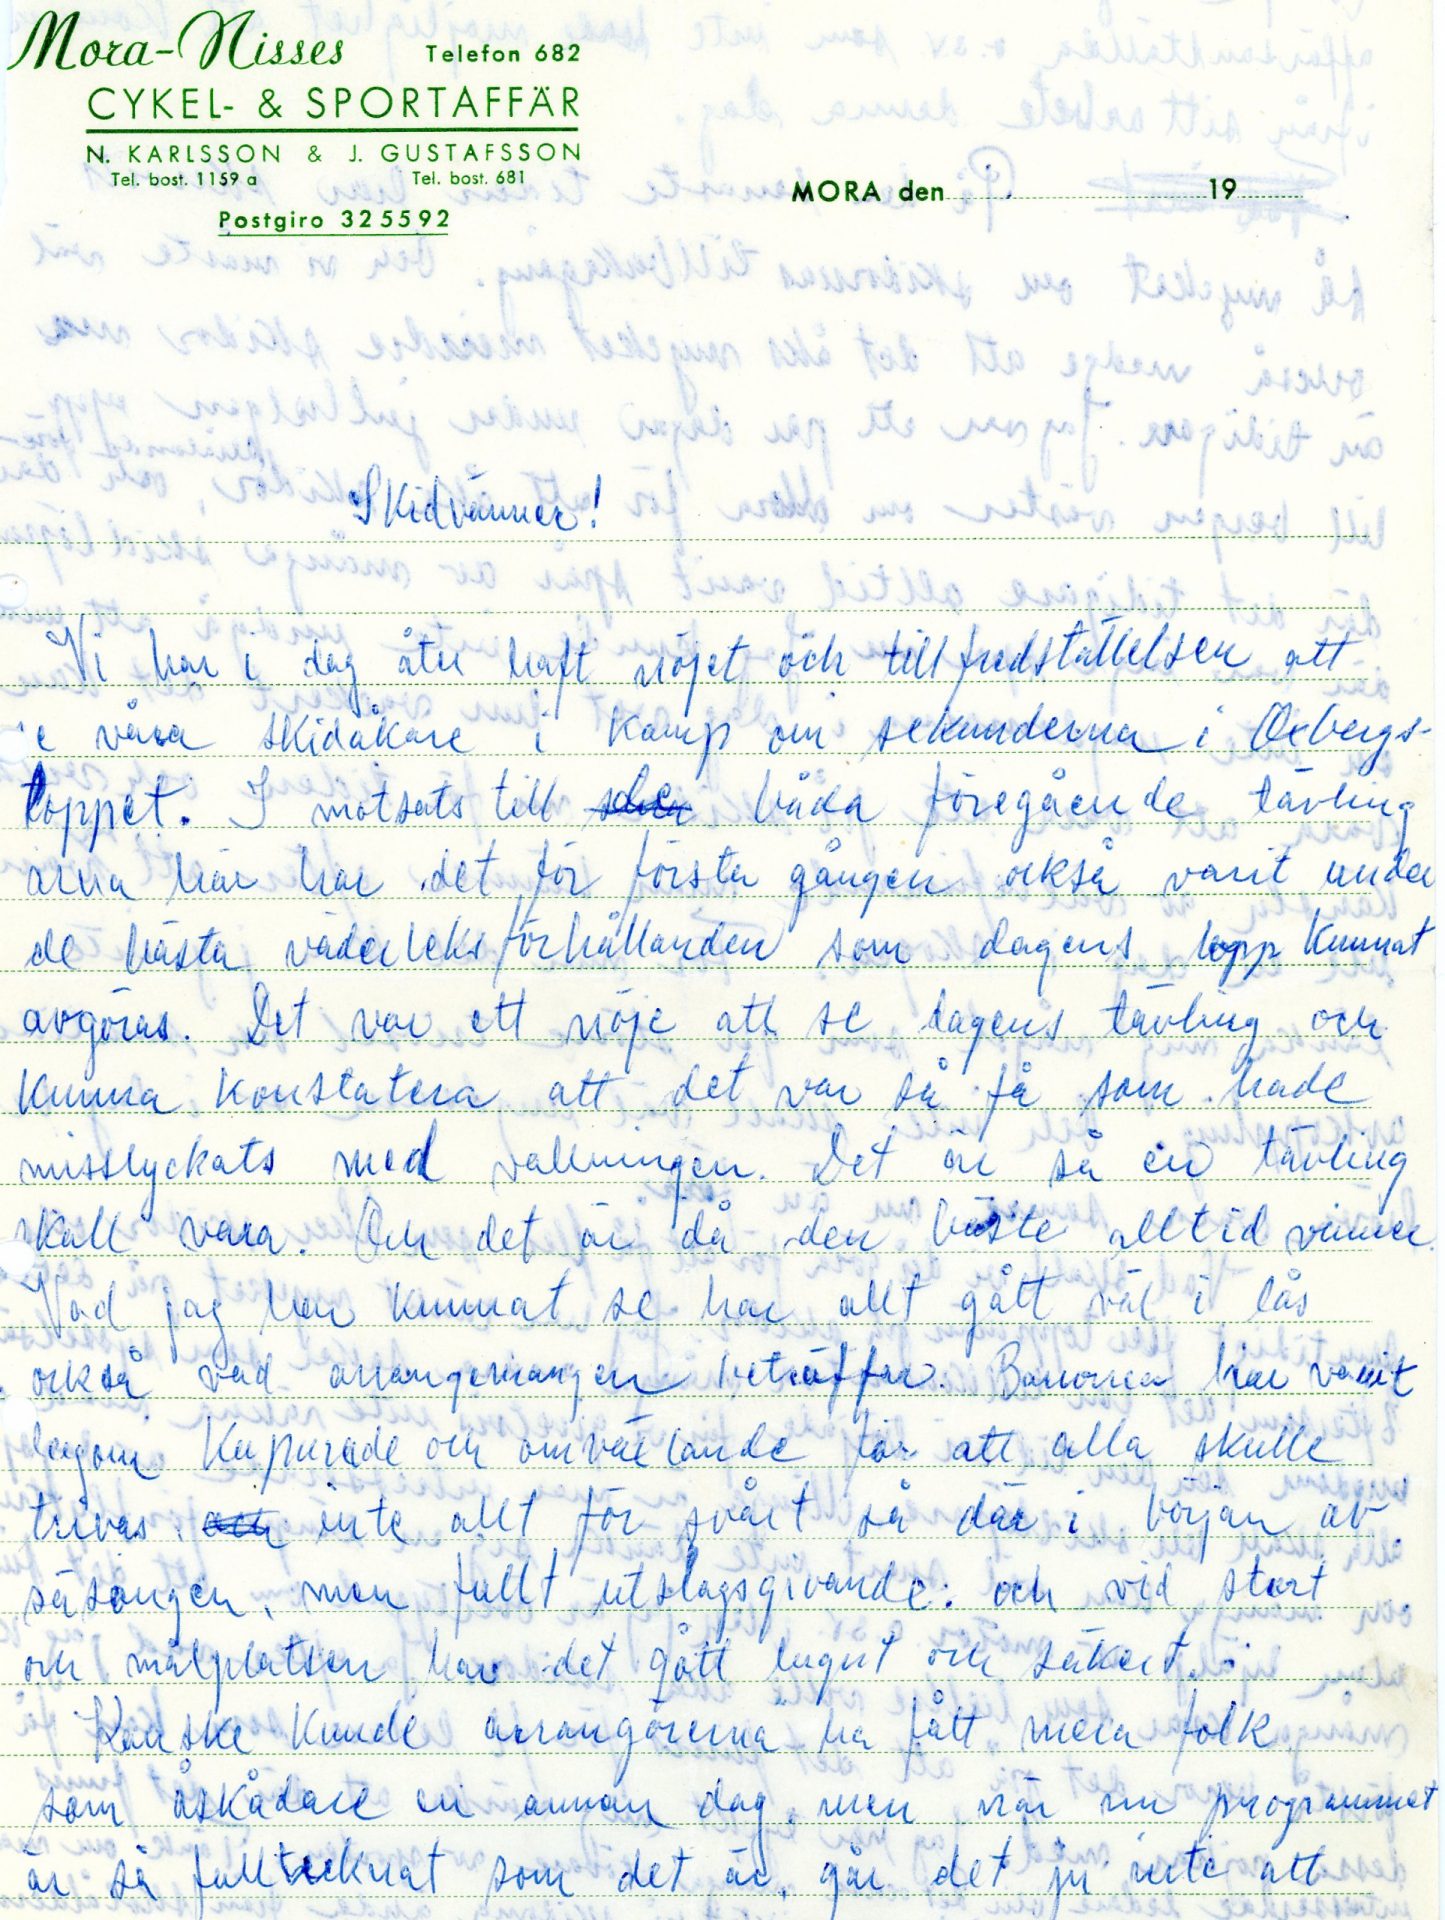 Mora-Nisses Telefon 682
CYKEL- & SPORTAFFÄR
N. KARLSSON & J. GUSTAFSSON
Tel. bost. 1159 a Tel. bost. 681
Postgiro 325592
MORA den 19
Skidvänner!
Vi har i dag åter haft nöjet och tillfredställelsen att
se våra skidåkare i kamp om sekunderna i Oxbergs-
loppet. I motsats till båda föregående tävling
arna här har det för första gången också varit under
de bästa väderleksförhållanden som dagens lopp kunnat
avgöras. Det var ett nöje att se dagens tävling och
kunna konstatera att det var så få som hade
misslyckats med vallningen. Det är så en tävling
skall vara. Och det är då den bäste alltid vinner.
Vad jag har kunnat se har allt gått väl i lås
också vad arrangemangen beträffar. Banorna har varit
lagom kuperade och omväxlande för att alla skulle
trivas inte allt för svårt så där i början av
säsongen, men fullt utslagsgivande: och vid start
och målplatsen har det gått lugnt och säkert.
Kanske kunde arrangörerna ha fått mera folk
som åskådare en annan dag, men när nu programmet
är så fulltecknat som det är, går det ju inte att